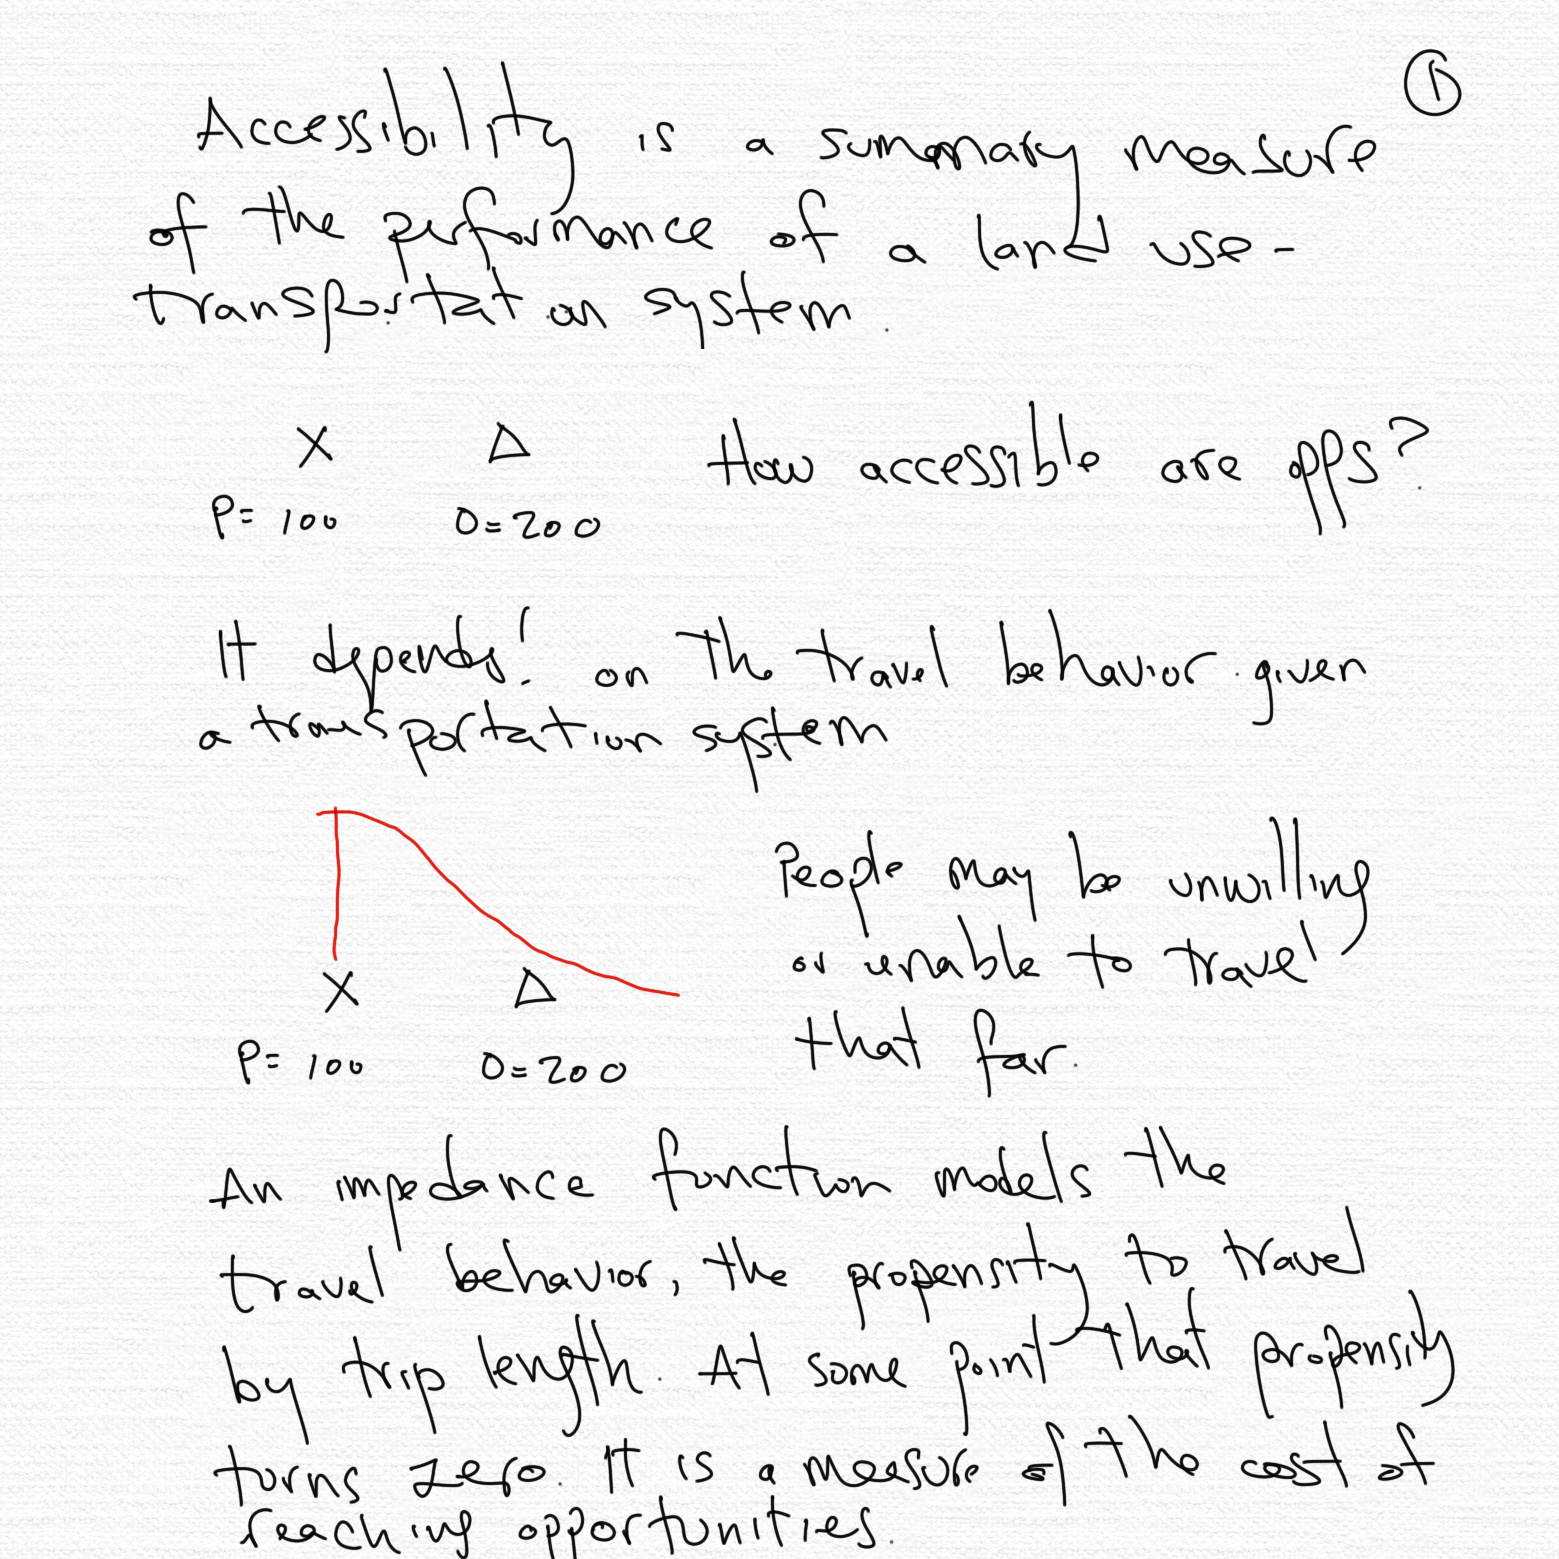 ①
Accessibility is a summary measure
of the performance of a land use-
transportation system.
X Δ How accessible are opps?
P= 100 O=200
It depends! on the travel behavior given
a transportation system
People may be unwilling
or unable to travel
that far.
X Δ
P= 100 O=200
An impedance function models the
travel behavior, the propensity to travel
by trip length. At some point that propensity
turns zero. It is a measure of the cost of
reaching opportunities.